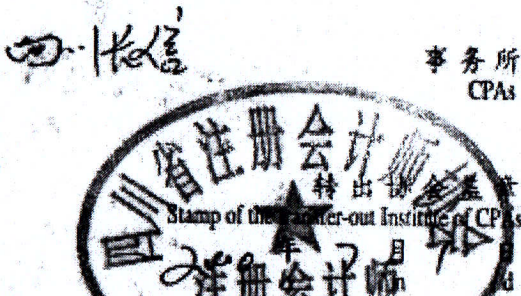 四川长信
事务所
CPAs
四川省注册会计师协会
转出协会盖章
Stamp of the transfer-out Institute of CPAs
年 7 月 日
注册会计师